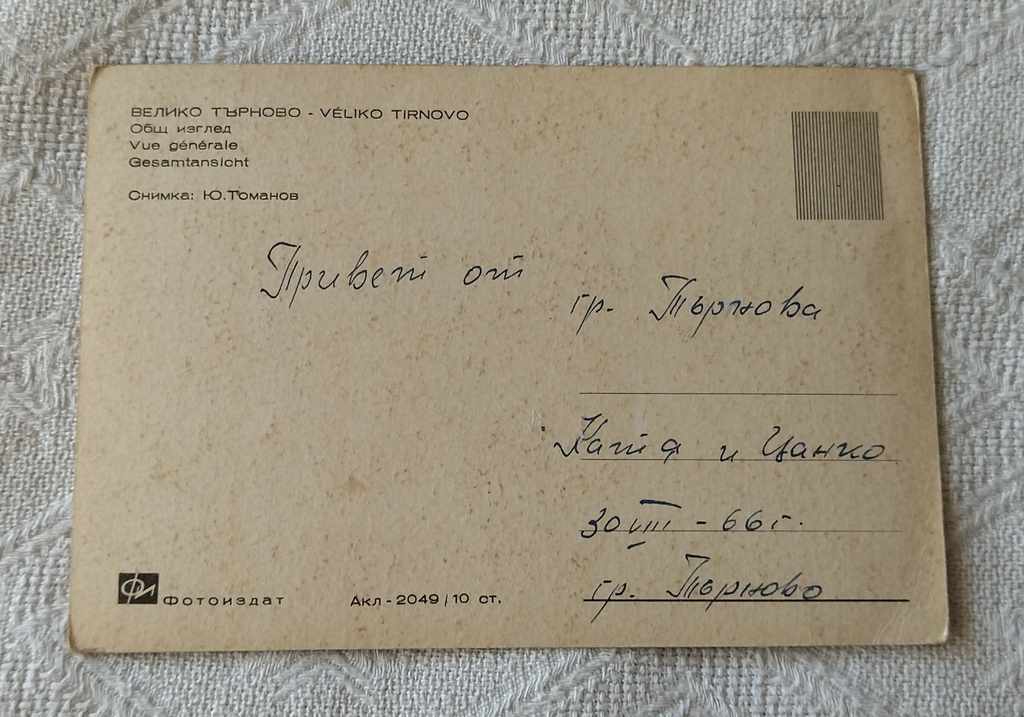 ВЕЛИКО ТЪРНОВО - VÉLIKO TIRNOVO
Общ изглед
Vue générale
Gesamtansicht
Снимка: Ю. Томанов
Привет от
гр. Търнова
Катя и Цанко
30 VIII - 66 г.
гр. Търново
ФИ Фотоиздат
Акл - 2049 / 10 ст.